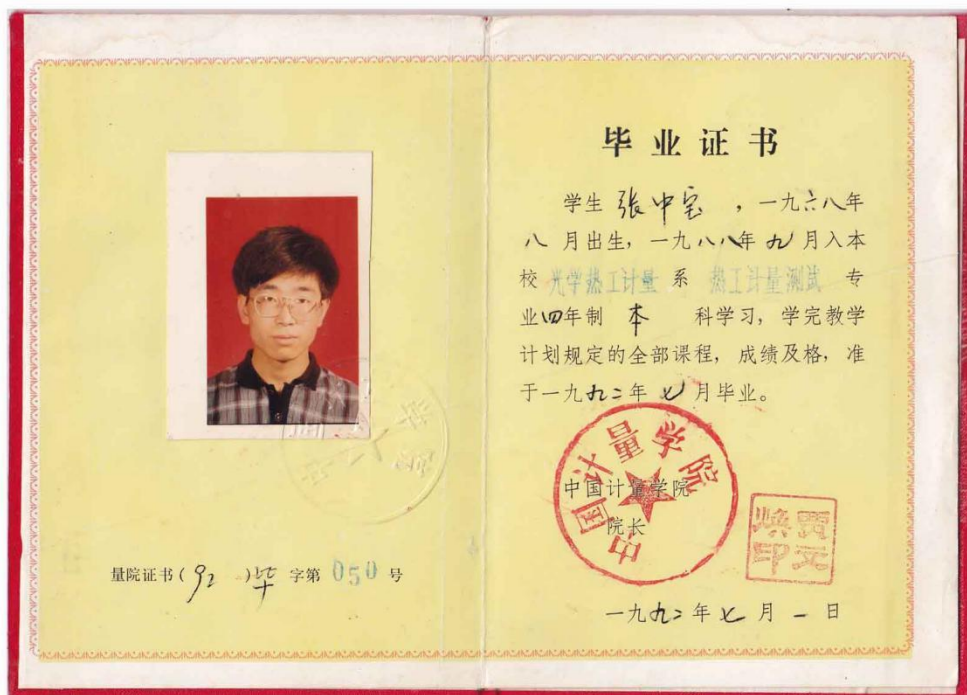 量院证书(92)毕字第050号
毕业证书
学生 张中宝 ,一九六八年
八月出生,一九八八年九月入本
校 光学热工计量 系 热工计量测试 专
业四年制 本 科学习,学完教学
计划规定的全部课程,成绩及格,准
于一九九二年七月毕业。
中国计量学院
中国计量学院
院长
贾文焕印
一九九二年七月一日